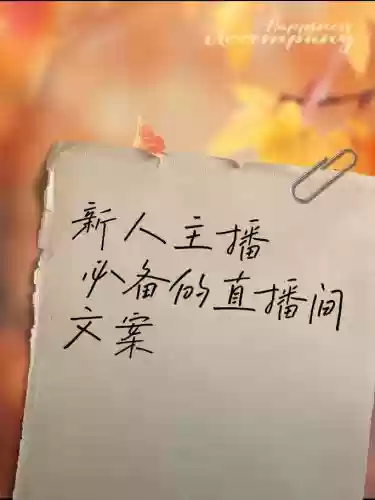 Happiness
accompany
新人主播
必备的直播间
文案